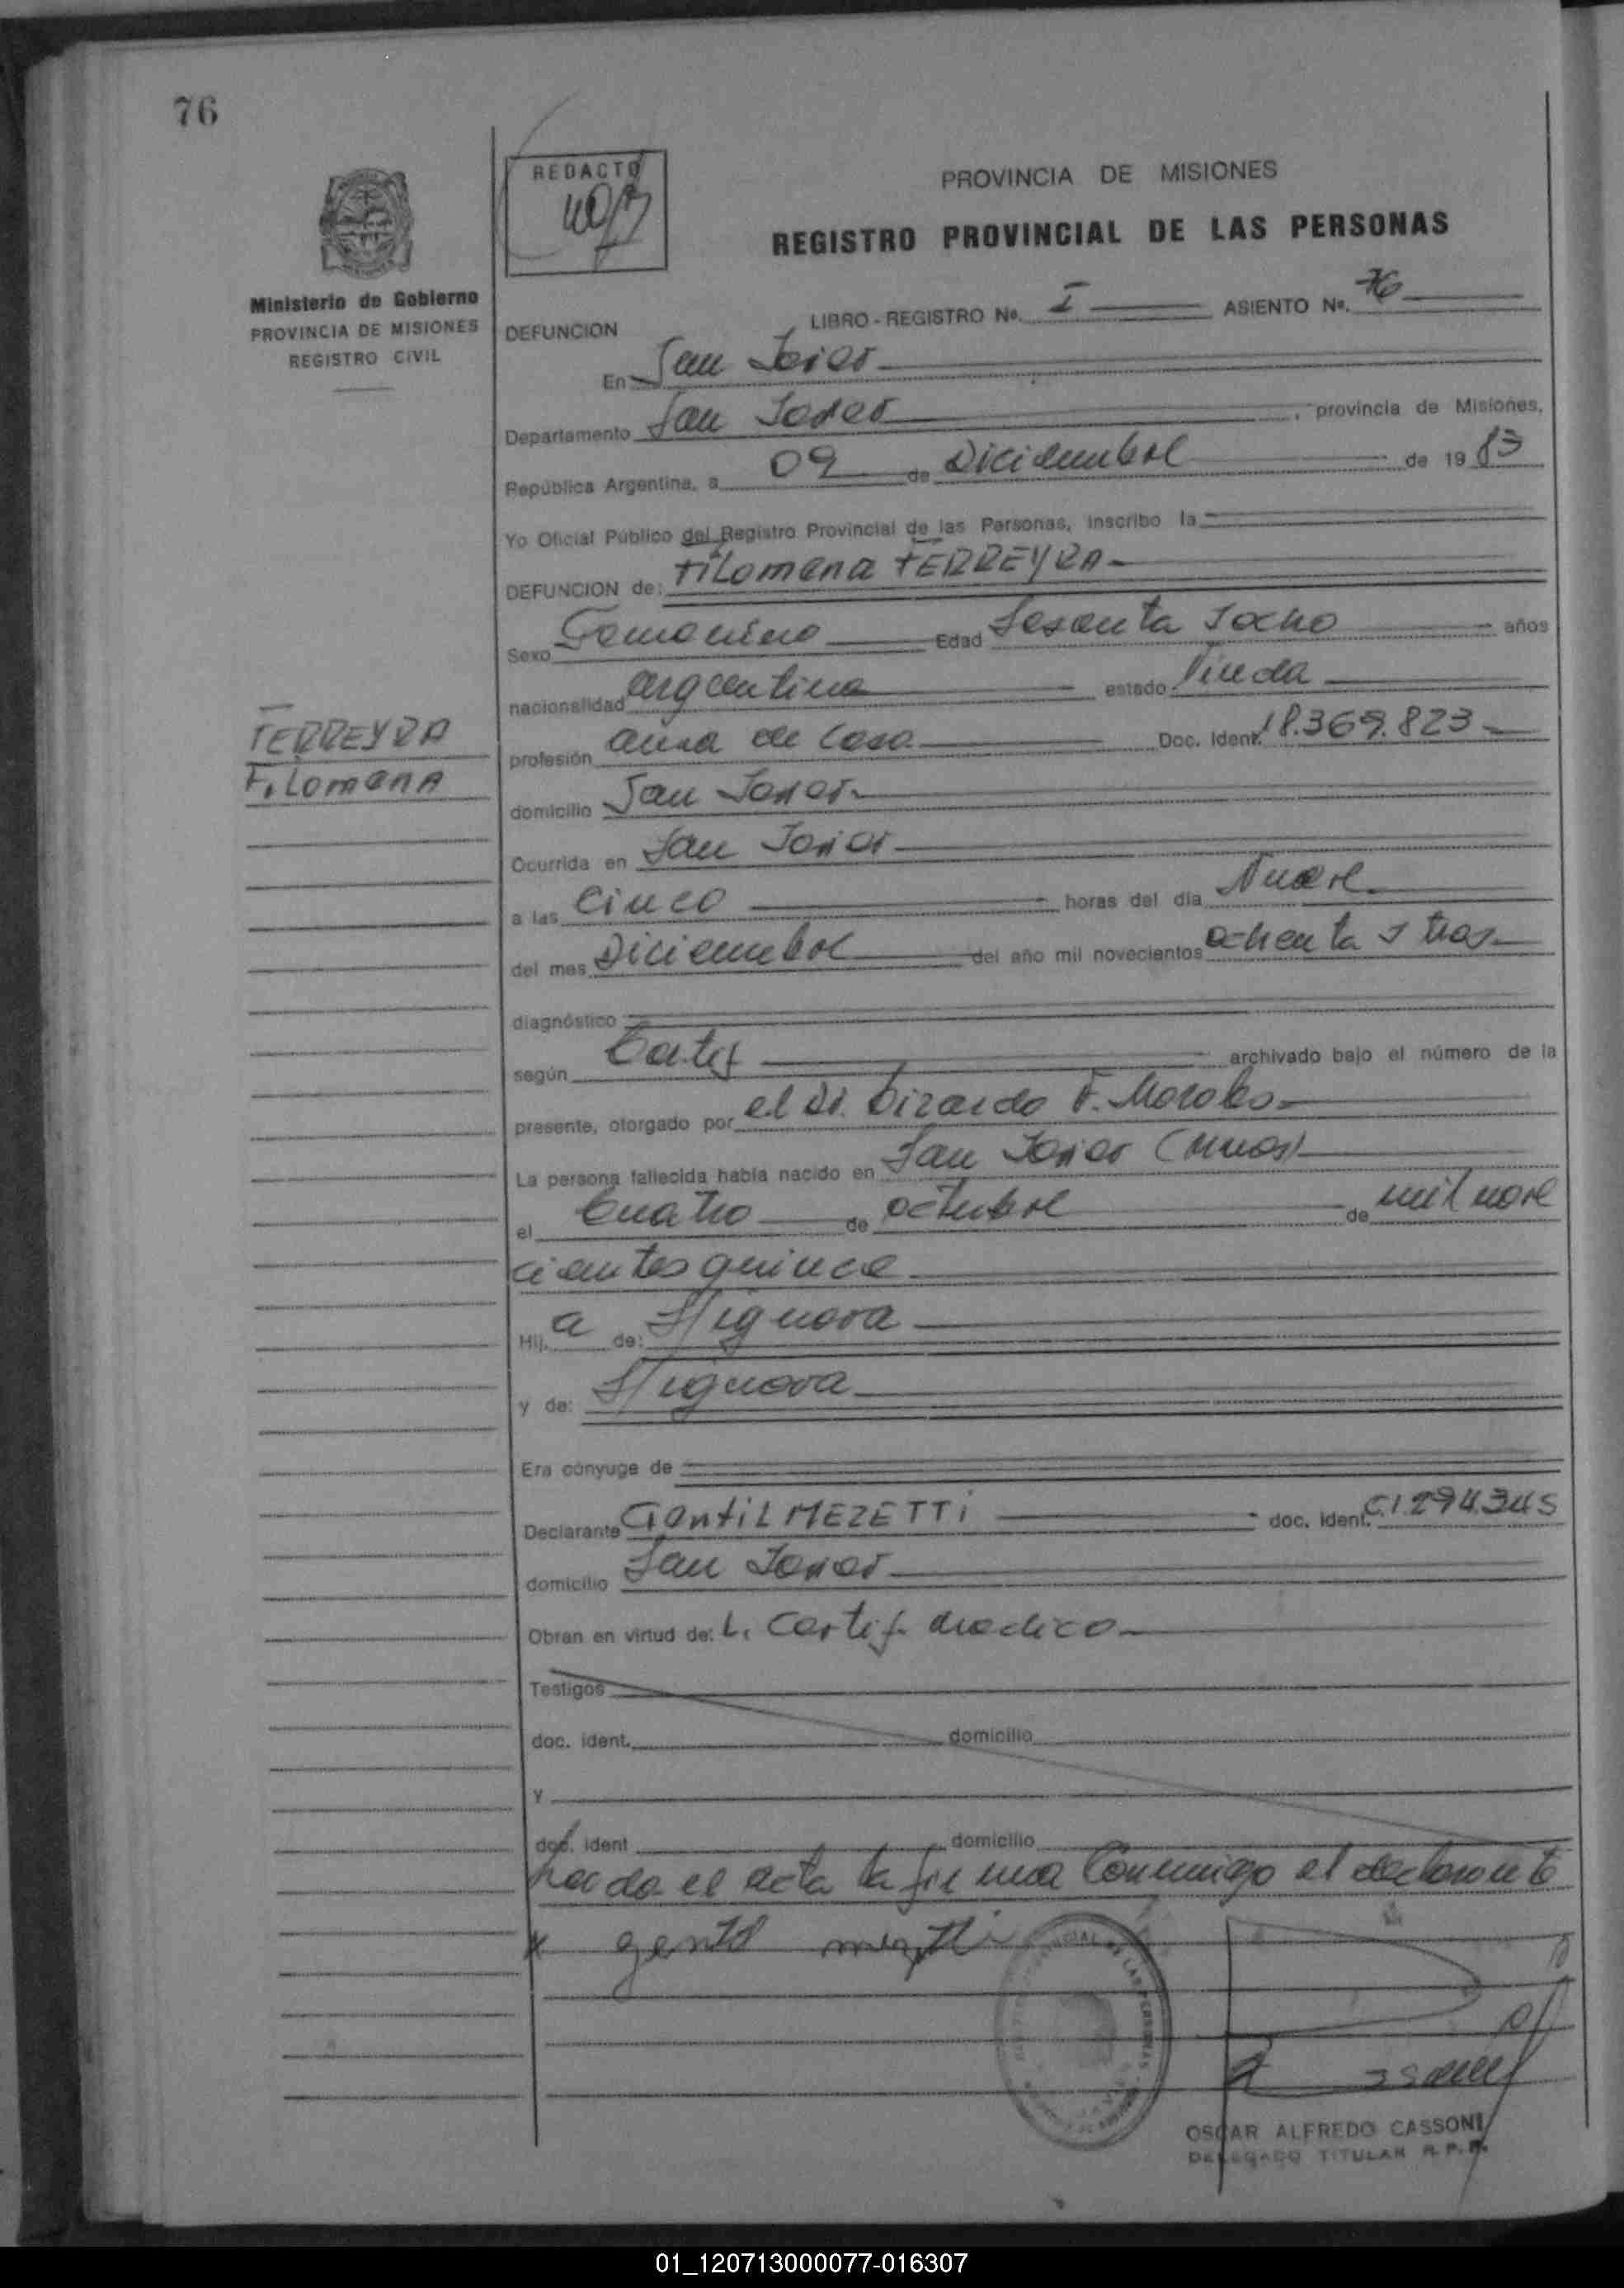 76
REDACTO
PROVINCIA DE MISIONES
REGISTRO PROVINCIAL DE LAS PERSONAS
Ministerio de Gobierno
PROVINCIA DE MISIONES
REGISTRO CIVIL
DEFUNCION
LIBRO - REGISTRO Nº. I ASIENTO Nº. 76
En San Javier
Departamento San Javier, provincia de Misiones,
República Argentina, a 09 de Diciembre de 1983
Yo Oficial Público del Registro Provincial de las Personas, inscribo la
DEFUNCION de: Filomena FERREYRA
Sexo Femenino Edad Sesenta y ocho años
nacionalidad argentina estado Viuda
FERREYRA
Filomena
profesión ama de casa Doc. Ident. 18.369.823
domicilio San Javier
Ocurrida en San Javier
a las Cinco horas del día Nueve
del mes Diciembre del año mil novecientos ochenta y tres
diagnóstico
según Certif archivado bajo el número de la
presente, otorgado por el Dr. F. Morales
La persona fallecida había nacido en San Javier (Mnes)
el Cuatro de octubre de mil nove
cientos quince
Hij a de: Se ignora
y de: Se ignora
Era cónyuge de
Declarante Gentil MEZETTi doc. ident. C.I. 294.345
domicilio San Javier
Obran en virtud de: L. Certif. medico
Testigos
doc. ident. domicilio
Y
doc. ident domicilio
Leida el acta la firma Conmigo el declarante
x gentil mezetti
OSCAR ALFREDO CASSONI
DELEGADO TITULAR R. P. P.
01_120713000077-016307